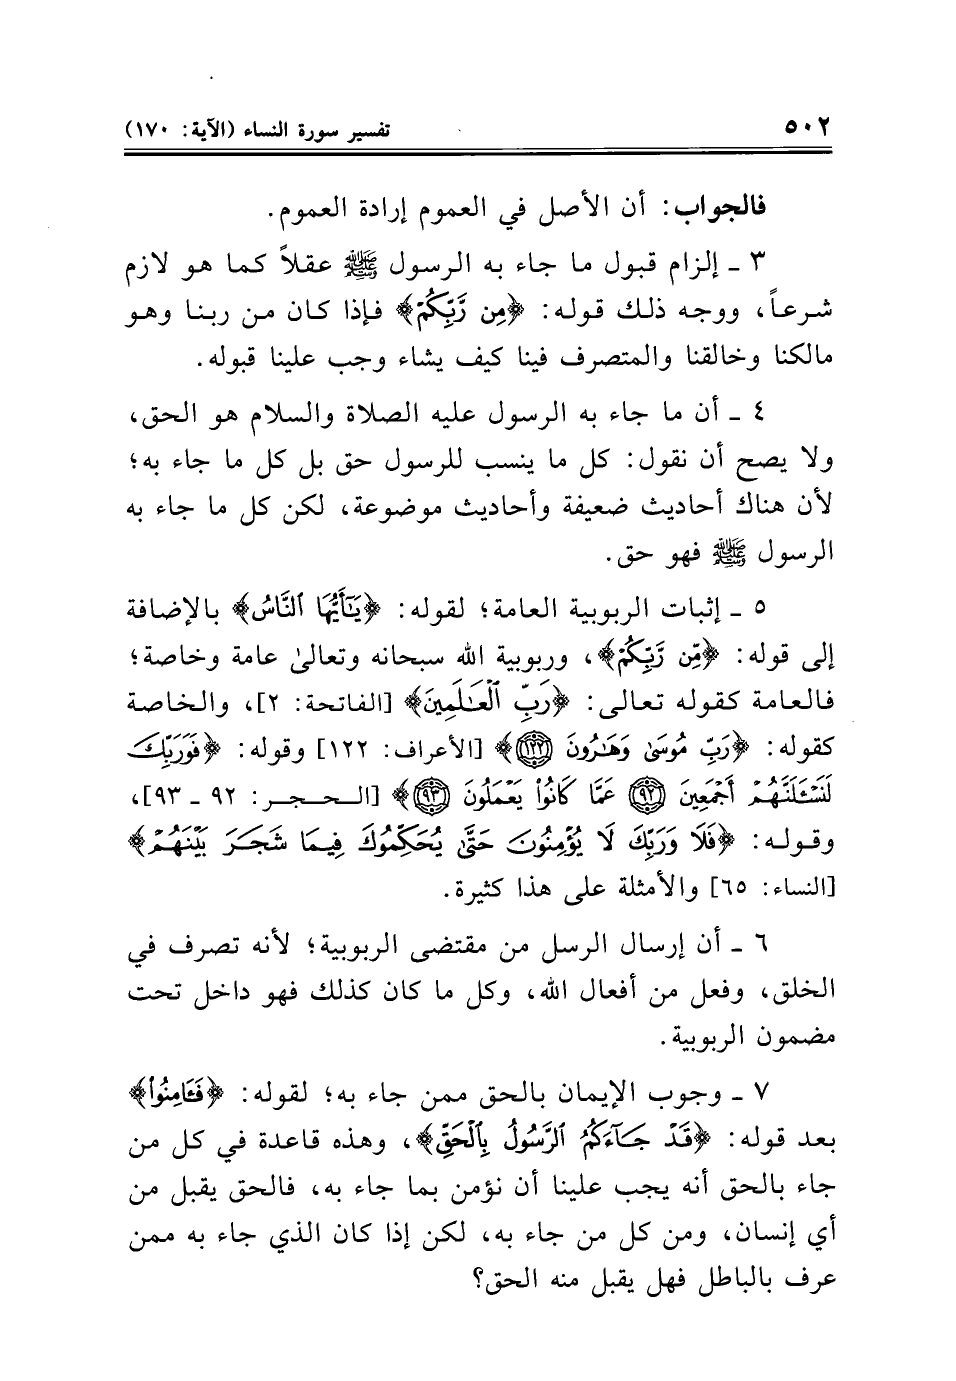 ٥٠٢ تفسير سورة النساء (الآية: ١٧٠)
فالجواب: أن الأصل في العموم إرادة العموم.
٣ ـ إلزام قبول ما جاء به الرسول ﷺ عقلاً كما هو لازم
شرعاً، ووجه ذلك قوله: ﴿مِن رَّبِّكُمْ﴾ فإذا كان من ربنا وهو
مالكنا وخالقنا والمتصرف فينا كيف يشاء وجب علينا قبوله.
٤ ـ أن ما جاء به الرسول عليه الصلاة والسلام هو الحق،
ولا يصح أن نقول: كل ما ينسب للرسول حق بل كل ما جاء به؛
لأن هناك أحاديث ضعيفة وأحاديث موضوعة، لكن كل ما جاء به
الرسول ﷺ فهو حق.
٥ ـ إثبات الربوبية العامة؛ لقوله: ﴿يَـٰٓأَيُّهَا ٱلنَّاسُ﴾ بالإضافة
إلى قوله: ﴿مِّن رَّبِّكُمْ﴾، وربوبية الله سبحانه وتعالىٰ عامة وخاصة؛
فالعامة كقوله تعالى: ﴿رَبِّ ٱلْعَـٰلَمِينَ﴾ [الفاتحة: ٢]، والخاصة
كقوله: ﴿رَبِّ مُوسَىٰ وَهَـٰرُونَ ١٢٢﴾ [الأعراف: ١٢٢] وقوله: ﴿فَوَرَبِّكَ
لَنَسْـَٔلَنَّهُمْ أَجْمَعِينَ ٩٢ عَمَّا كَانُوا۟ يَعْمَلُونَ ٩٣﴾ [الحجر: ٩٢ ـ ٩٣]،
وقوله: ﴿فَلَا وَرَبِّكَ لَا يُؤْمِنُونَ حَتَّىٰ يُحَكِّمُوكَ فِيمَا شَجَرَ بَيْنَهُمْ﴾
[النساء: ٦٥] والأمثلة على هذا كثيرة.
٦ ـ أن إرسال الرسل من مقتضى الربوبية؛ لأنه تصرف في
الخلق، وفعل من أفعال الله، وكل ما كان كذلك فهو داخل تحت
مضمون الربوبية.
٧ ـ وجوب الإيمان بالحق ممن جاء به؛ لقوله: ﴿فَـَٔامِنُوا۟﴾
بعد قوله: ﴿قَدْ جَآءَكُمُ ٱلرَّسُولُ بِٱلْحَقِّ﴾، وهذه قاعدة في كل من
جاء بالحق أنه يجب علينا أن نؤمن بما جاء به، فالحق يقبل من
أي إنسان، ومن كل من جاء به، لكن إذا كان الذي جاء به ممن
عرف بالباطل فهل يقبل منه الحق؟